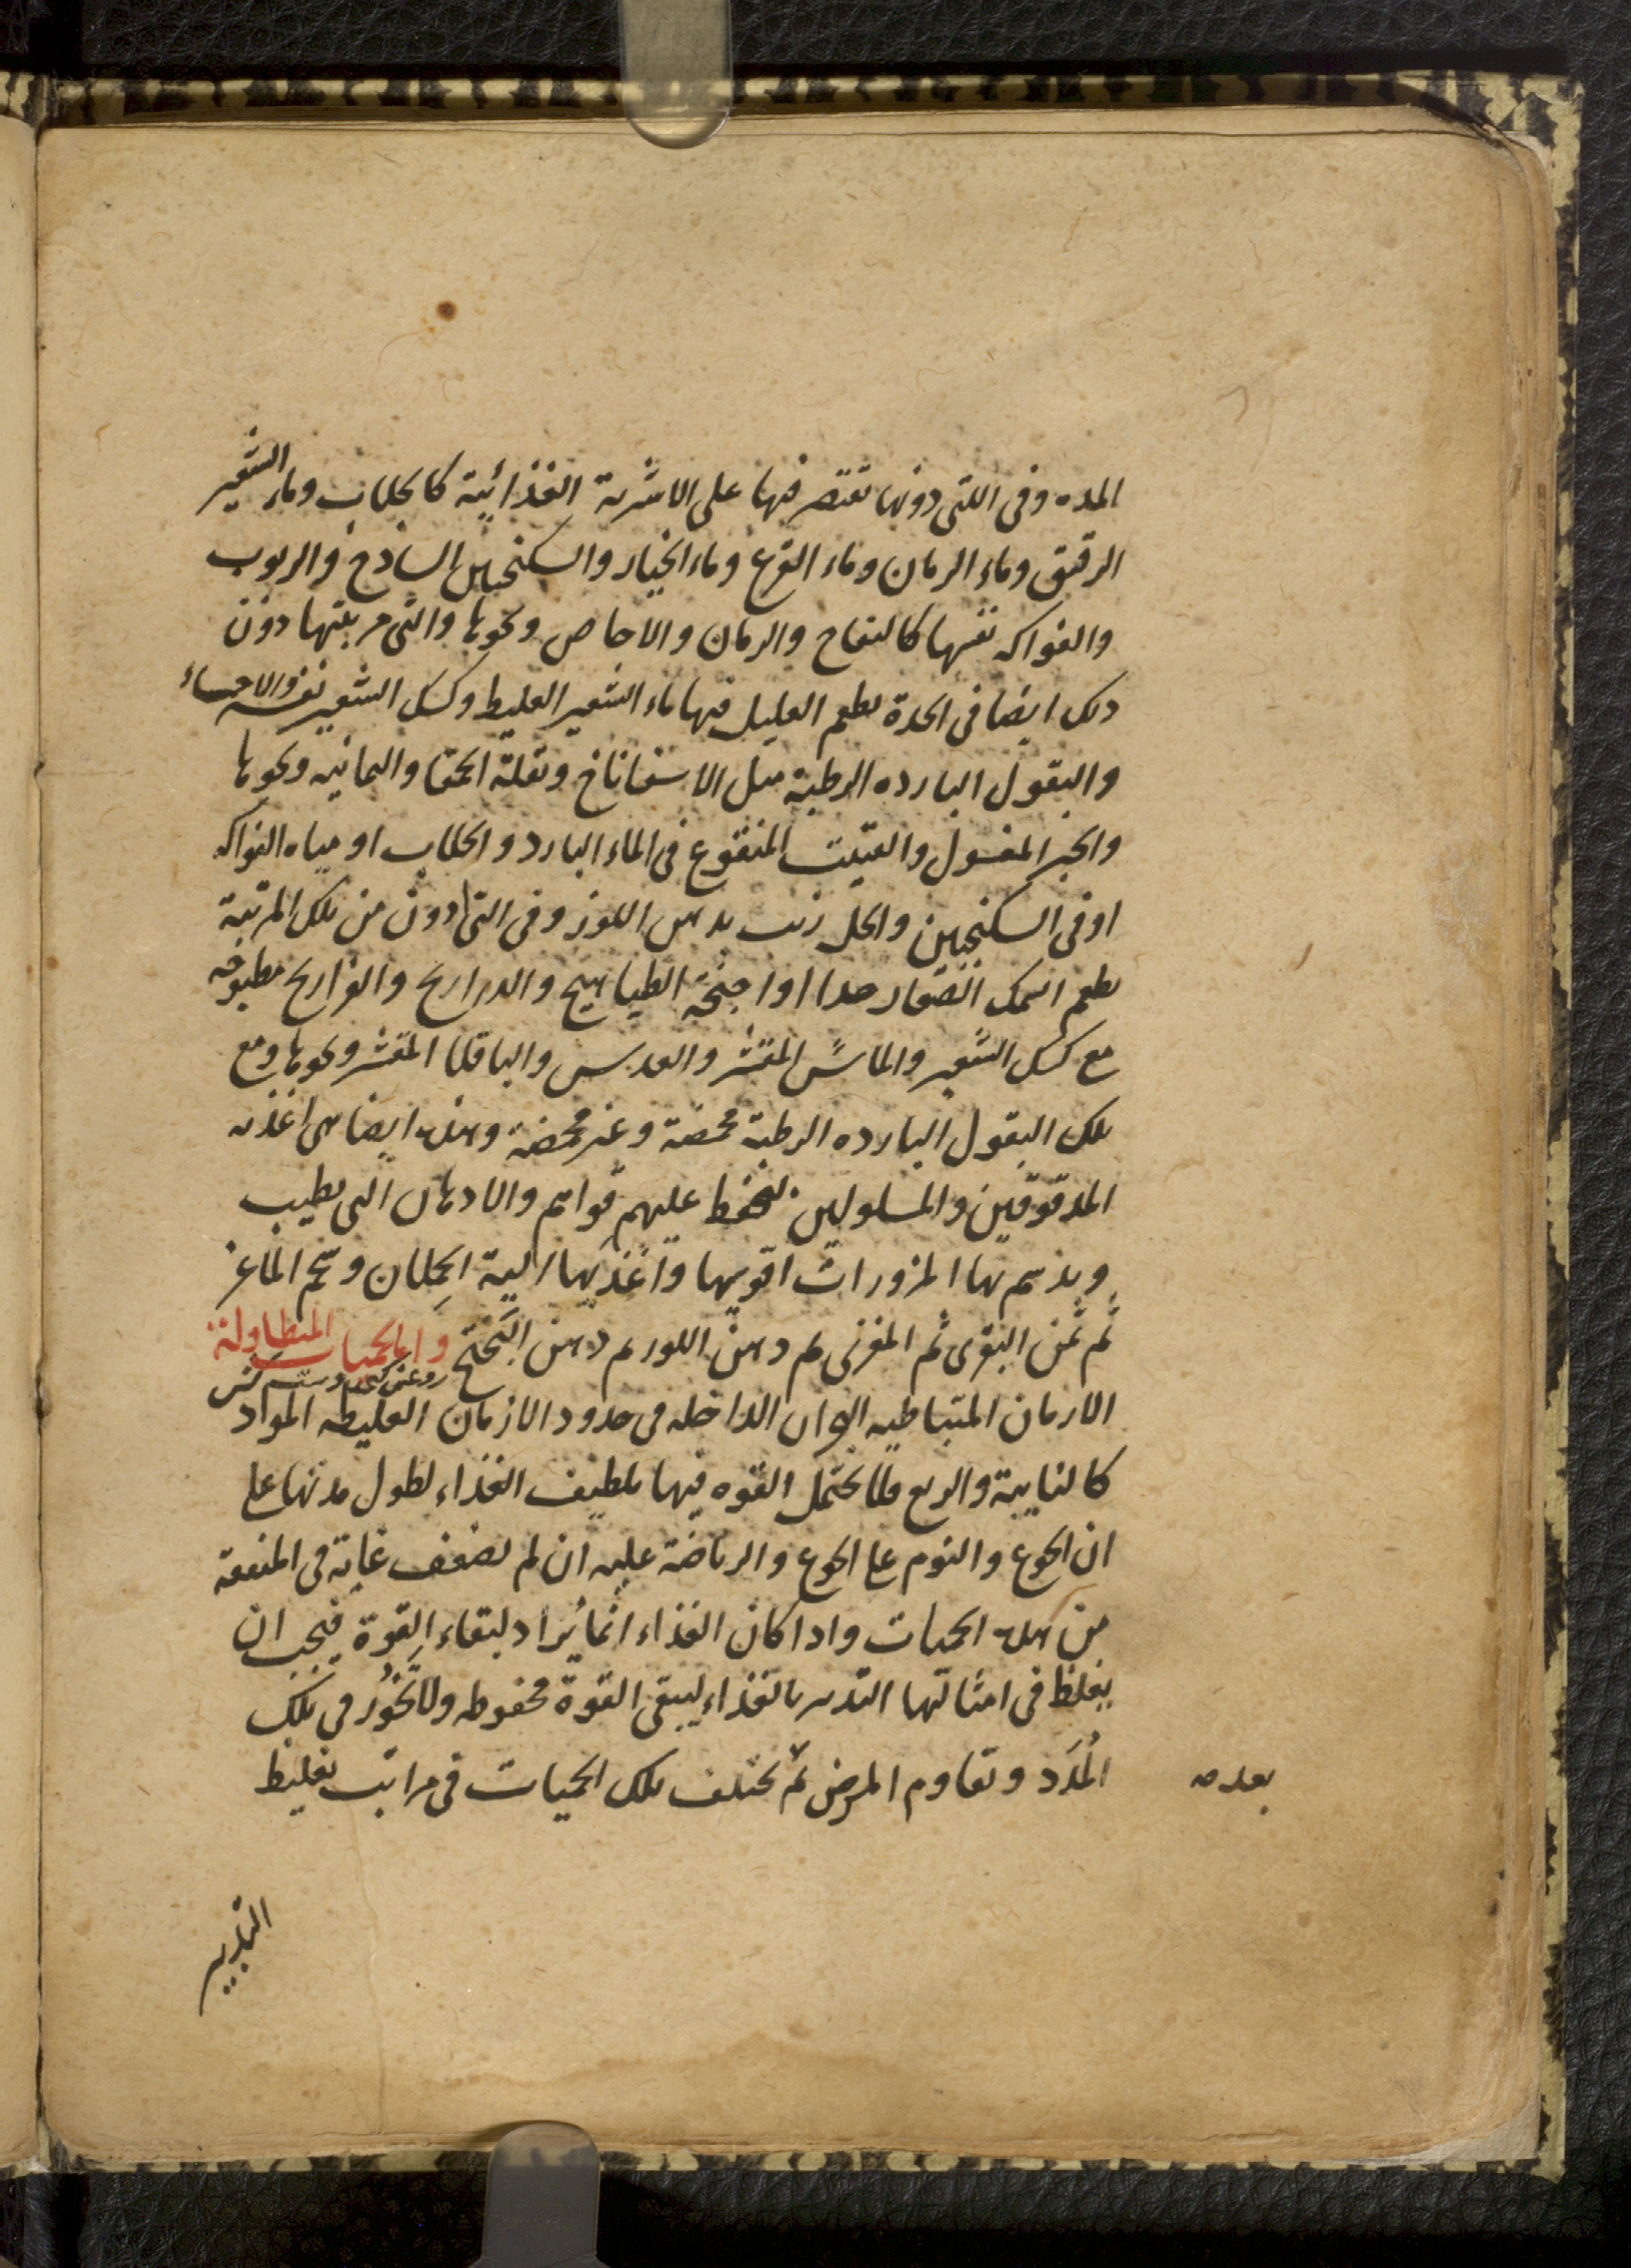 المده وفى اللتى دونها تقتصر فيها على الاشربة الغذائية كالجلاب وماء الشعير
الرقيق وماء الرمان وماء القرع وماء الخيار والسكنجبين الساذج والربوب
والفواكه نفسها كالتفاح والرمان والاجاص ونحوها والتى مرتبتها دون
ذلك ايضا فى الحدة يطعم العليل فيها ماء الشعير الغليظ وكشك الشعير نفسه والاحساء
والبقول البارده الرطبة مثل الاسفاناخ وبقلة الحمقا واليمانيه ونحوها
والخبز المغسول والفتيت المنقوع فى الماء البارد والجلاب او مياه الفواكه
او فى السكنجبين والخل زيت بدهن اللوز وفى التى ادون من تلك المرتبة
يطعم السمك الصغار جدا او اجنحة الطياهيج والدراريج والفراريج مطبوخه
مع كشك الشعير والماش المقشر والعدس والباقلا المقشر ونحوها ومع
تلك البقول البارده الرطبة محمضة وغير محمضة وهذه ايضا هى اغذيه
المدقوقين والمسلولين ليحفظ عليهم قواهم والادهان التى يطيب
ويدسم بها المزورات اقويها واغذيها الية الحملان وشحم الماعز
ثم سمن البقرى ثم المعزى ثم دهن اللوز ثم دهن و اما الحميات المتطاولة
الازمان المتباطيه الداخله فى حدود الازمان الغليظه المواد
كالنايبة والربع فلا يحتمل القوه فيها تلطيف الغذاء لطول مدتها على
ان الجوع والنوم على الجوع والرياضة عليه ان لم تضعف غاية فى المنفعة
من هذه الحميات واذا كان الغذاء انما يراد لبقاء القوة فيجب ان
يغلظ فى امثالها التدبير بالغذاء ليبقى القوة محفوظه ولا تخور فى تلك
المدد وتقاوم المرض ثم تختلف تلك الحميات فى مراتب تغليظ
التدبير